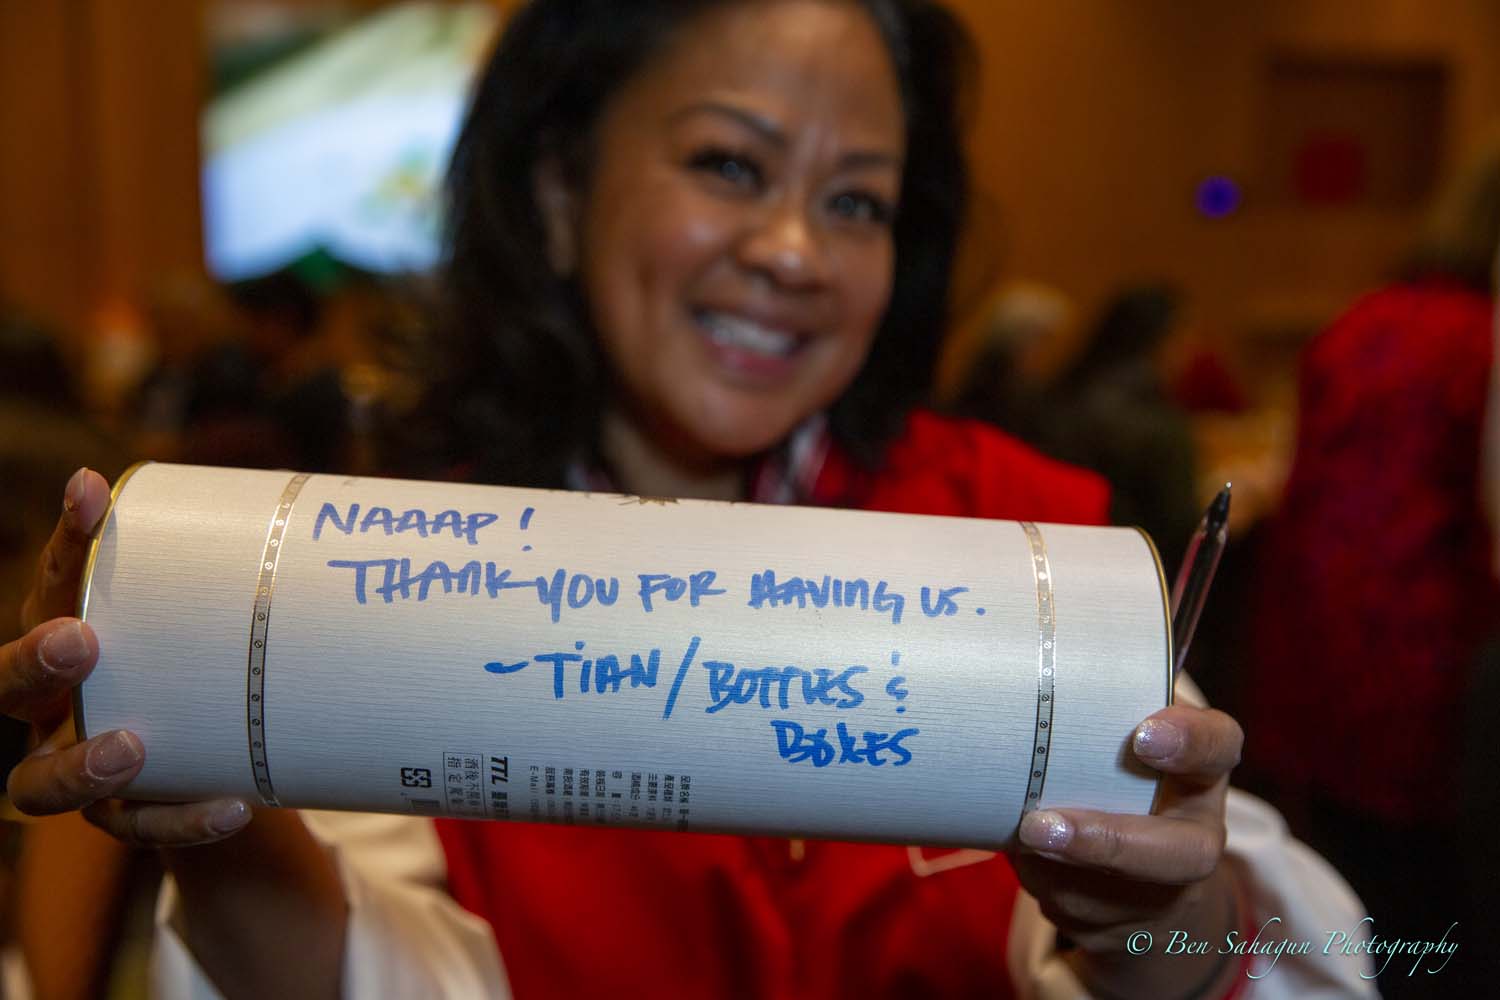 NAAAP!
THANK YOU FOR HAVING US.
~TIAN/BOTTLES &
BOKES
TTL
E-Mail
© Ben Sahagun Photography